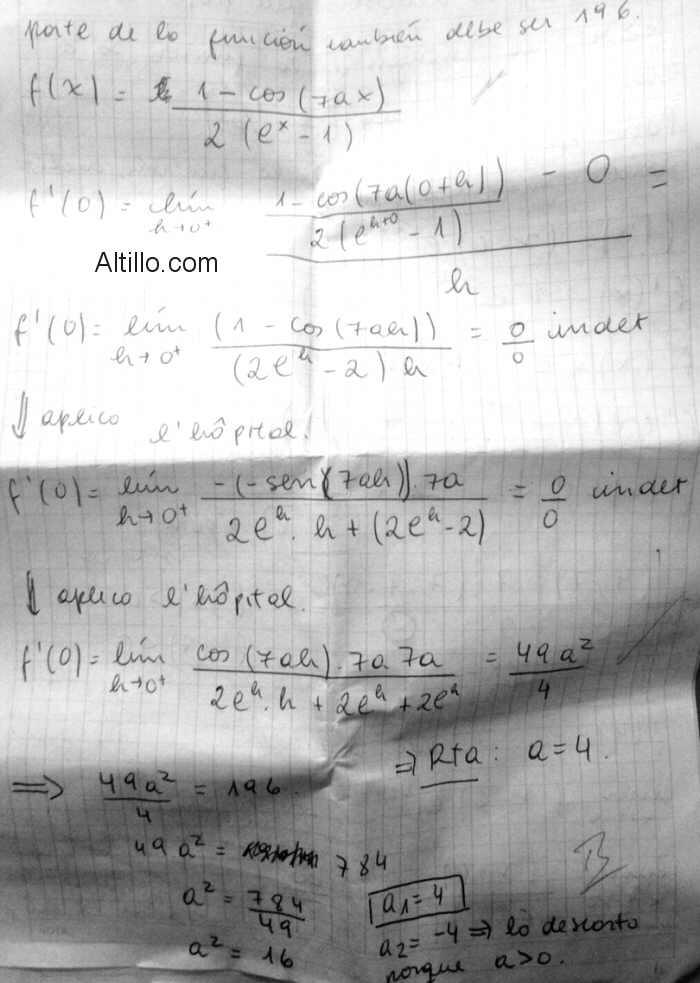 parte de la función también debe ser 196.
f(x) = 1 - cos(7ax) / 2(e^x - 1)
f'(0) = lím h→0+ ((1 - cos(7a(0+h))) / (2(e^(h+0) - 1)) - 0) / h =
Altillo.com
f'(0) = lím h→0+ (1 - cos(7ah)) / (2e^h - 2) h = 0/0 indet
⇓ aplico l'hôpital.
f'(0) = lím h→0+ -(-sen(7ah)).7a / 2e^h . h + (2e^h - 2) = 0/0 indet
⇓ aplico l'hôpital.
f'(0) = lím h→0+ cos(7ah).7a 7a / 2e^h.h + 2e^h + 2e^h = 49a²/4
⇒ Rta: a = 4.
⇒ 49a²/4 = 196.
49a² = 784
a² = 784/49
a² = 16
a1 = 4
a2 = -4 ⇒ lo descarto
porque a>0.
B